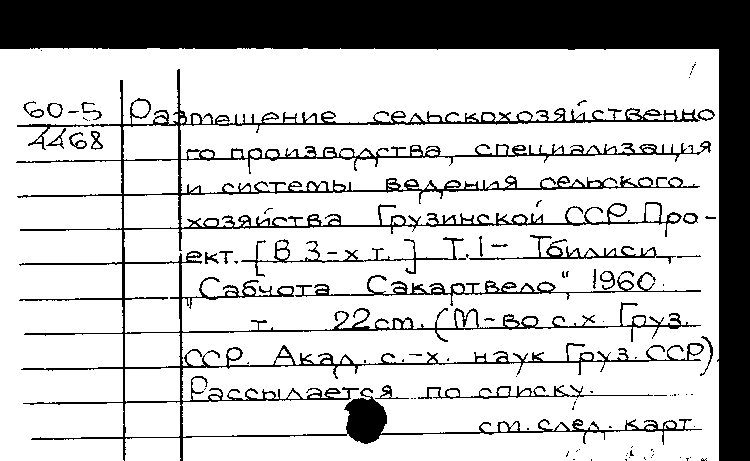 60-5 Размещение сельскохозяйственно
4468
го производства, специализация
и системы ведения сельского
хозяйства Грузинской ССР. Про-
ект. [В 3-х т.] Т.1- Тбилиси,
"Сабчота Сакартвело", 1960.
т. 22 см. (М-во с.х. Груз.
ССР. Акад. с.-х. наук Груз. ССР).
Рассылается по списку.
см. след. карт.